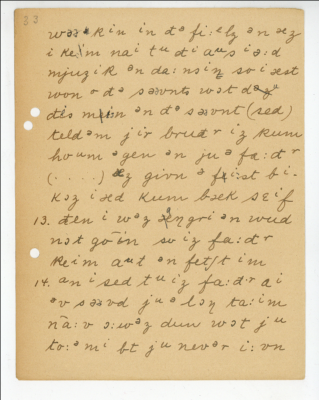 33
wəz ə kin in ðə fi:əlz ən əz
i keim nai tu ði aus i ə:d
mjuzik ən da:nsiŋ so i æst
won ə ðə səvnts wət
ðis min ən ðə səvnt (sed)
teld əm jir bruðr iz kum
houm əgen ən juə fa:ðr
(. . . .) əz givn ə fi:st bi-
kəz i əd kum bæk seif
13. ðen i wəz æŋgri ən wud
nət goin so iz fa:ðr
keim aut ən fetʃt im
14. ən i sed tu iz fa:ðr ai
əv səvd ju ə lɔŋ ta:im
na:v ɔ:wəz dun wət ju
to:əmi bt ju nevər i:vn